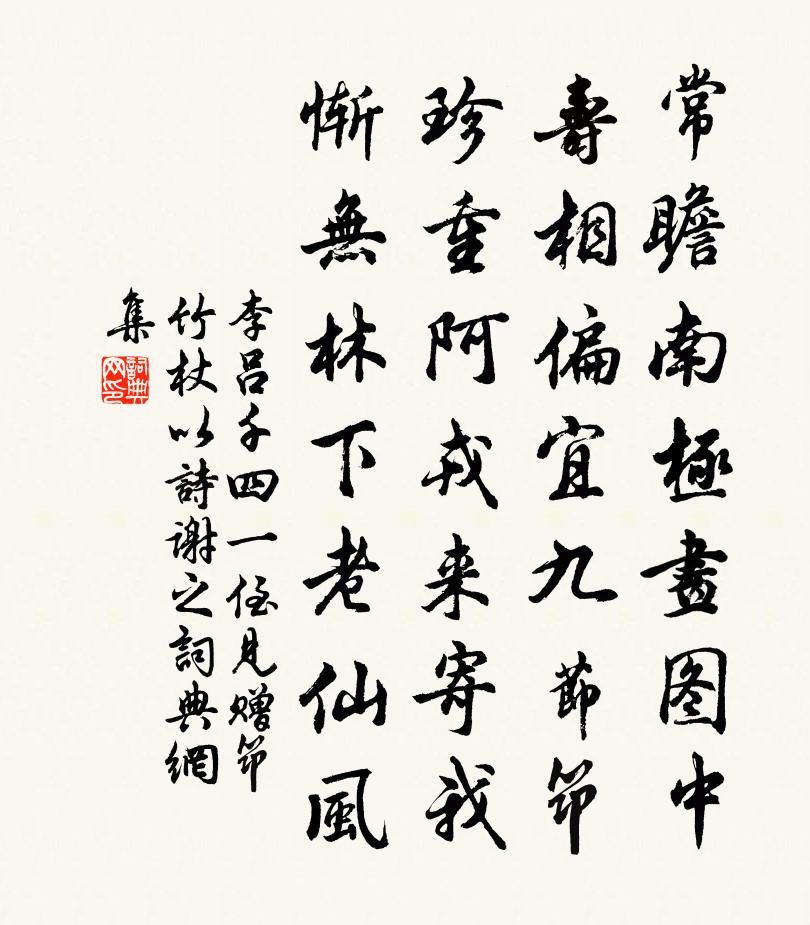 常瞻南極畫图中
壽相偏宜九節筇
珍重阿戎来寄我
慚無林下老仙風
李吕千四一侄見贈筇
竹杖以詩謝之詞典網
集
詞典网印